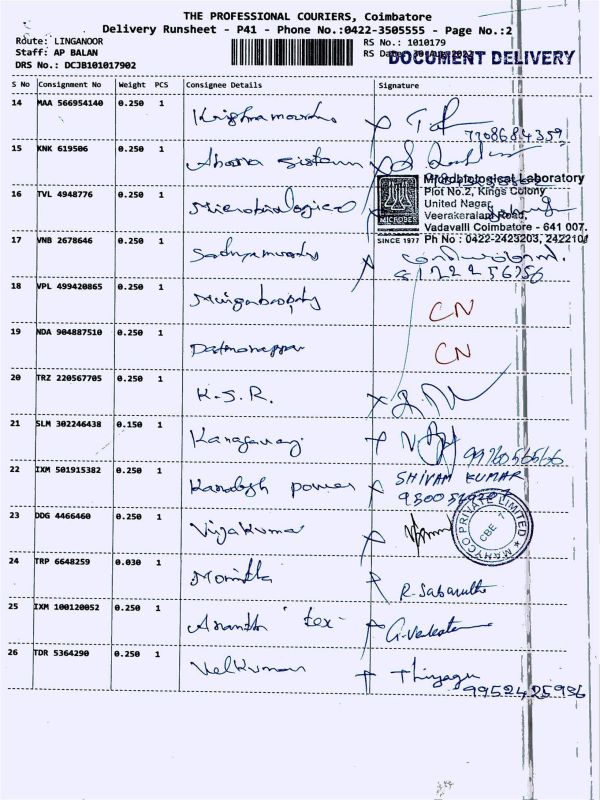 THE PROFESSIONAL COURIERS, Coimbatore
Delivery Runsheet - P41 - Phone No.:0422-3505555 - Page No.:2
Route: LINGANOOR
Staff: AP BALAN
DRS No.: DCJB101017902
RS No.: 1010179
RS Date:
DOCUMENT DELIVERY
S No Consignment No Weight PCS Consignee Details Signature
14 MAA 566954140 0.250 1 Krishnamoorthy
7708684359
15 KNK 619506 0.250 1
16 TVL 4948776 0.250 1 Microbiological
MICROBES
SINCE 1977
Microbiological Laboratory
Plot No.2, Kings Colony
United Nagar,
Veerakeralam Road,
Vadavalli Coimbatore - 641 007.
Ph No : 0422-2423203, 242210
17 VNB 2678646 0.250 1
8122256756
18 VPL 499420865 0.250 1 CN
19 NDA 904887510 0.250 1 CN
20 TRZ 220567705 0.250 1 K.S.R.
21 SLM 302246438 0.150 1
22 IXM 501915382 0.250 1 power SHIVAM KUMAR
23 DDG 4466460 0.250 1 Vijakumar
MAHYCO PRIVATE LIMITED
CBE
24 TRP 6648259 0.030 1
25 IXM 100120052 0.250 1 Ananth tex
26 TDR 5364290 0.250 1 Velkumar Thiyagu
9952425936